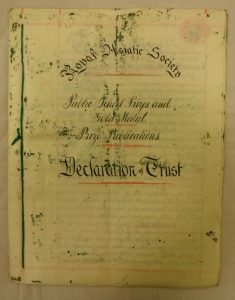 Royal Asiatic Society
Public School Prizes and
Gold Medal
Prize Publications
Declaration of Trust